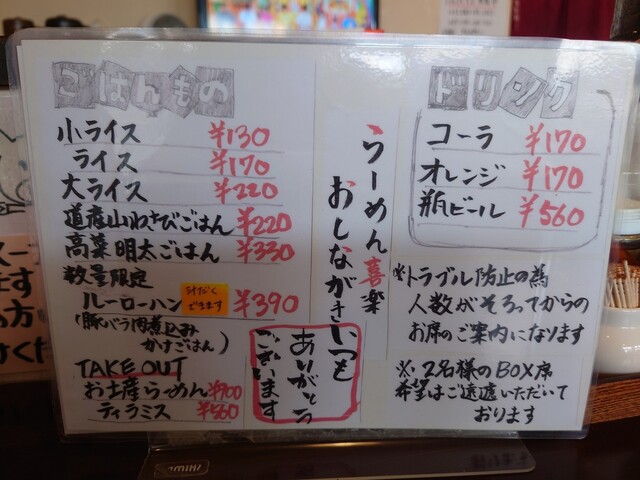 ごはんもの
小ライス ¥130
ライス ¥170
大ライス ¥220
道産山わさびごはん ¥220
高菜明太ごはん ¥330
数量限定
ルーローハン 汁だくできます ¥390
(豚バラ肉煮込みかすごはん)
TAKE OUT
お土産らーめん ¥700
ティラミス ¥560
らーめん喜楽
おしながき
いつも
ありがとう
ございます
ドリンク
コーラ ¥170
オレンジ ¥170
瓶ビール ¥560
※トラブル防止の為
人数がそろってからの
お席のご案内になります
※2名様のBOX席
希望はご遠慮いただいて
おります